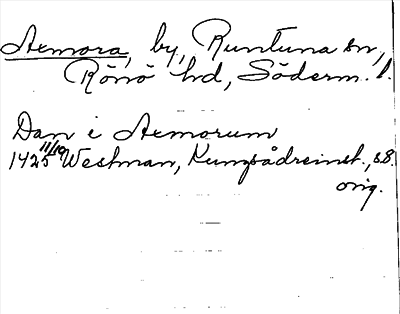 Aemora, by, Runtuna sn,
Rönö hd, Söderm. l.
Dan i Aemorum
1425 11/10 Westman, Kungsådreinst., s 8.
orig.